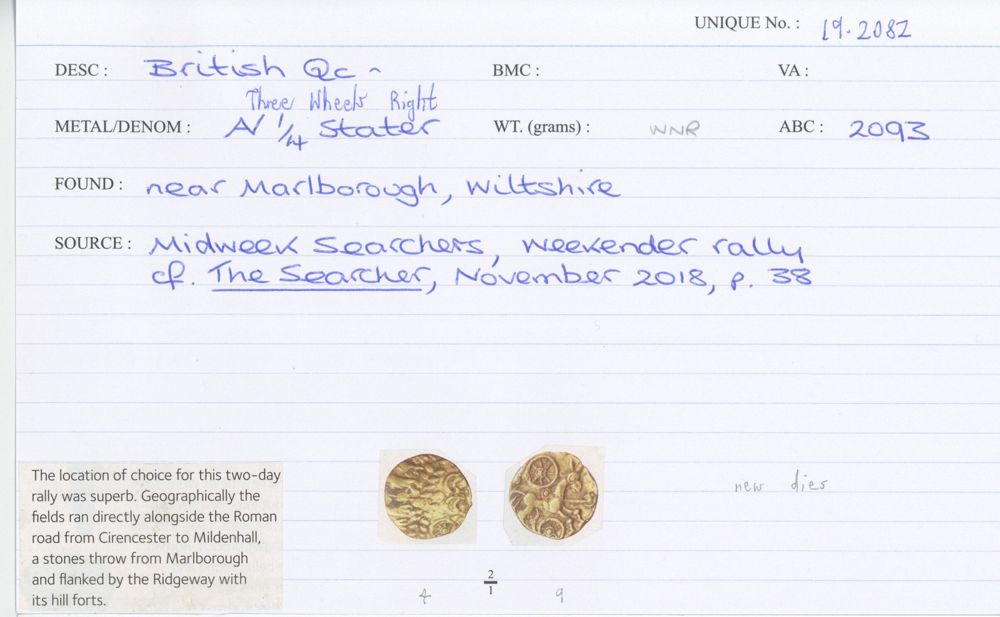 UNIQUE No. : 19.2082
DESC : British Qc ~ BMC : VA :
Three Wheels Right
METAL/DENOM : AV 1/4 Stater WT. (grams) : WNR ABC : 2093
FOUND : near Marlborough, Wiltshire
SOURCE : Midweek Searchers, Weekender rally
cf. The Searcher, November 2018, p. 38
The location of choice for this two-day
rally was superb. Geographically the
fields ran directly alongside the Roman
road from Cirencester to Mildenhall,
a stones throw from Marlborough
and flanked by the Ridgeway with
its hill forts.
new dies
2/1
4 9